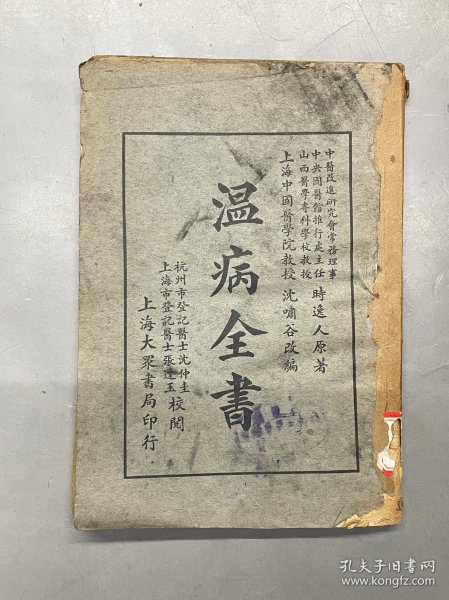 中醫改進研究會常務理事
中央國醫館推行處主任
山西醫學專科學校教授
時逸人原著
上海中國醫學院教授 沈嘯谷改編
溫病全書
杭州市登記醫士沈仲圭
上海市登記醫士張達玉
校閱
上海大眾書局印行
孔夫子旧书网
www.kongfz.com